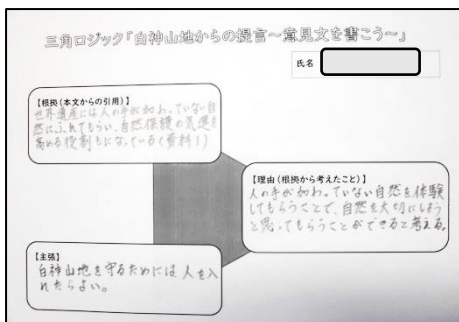 三角ロジック「白神山地からの提言～意見文を書こう～」
氏名
【根拠(本文からの引用)】
世界遺産には人の手が加わっていない自
然にふれてもらい、自然保護の気運を
高める役割もになっている(資料1)
【理由(根拠から考えたこと)】
人の手が加わっていない自然を体験
してもらうことで、自然を大切にしよう
と思ってもらうことができると考える。
【主張】
白神山地を守るためには人を入
れたらよい。